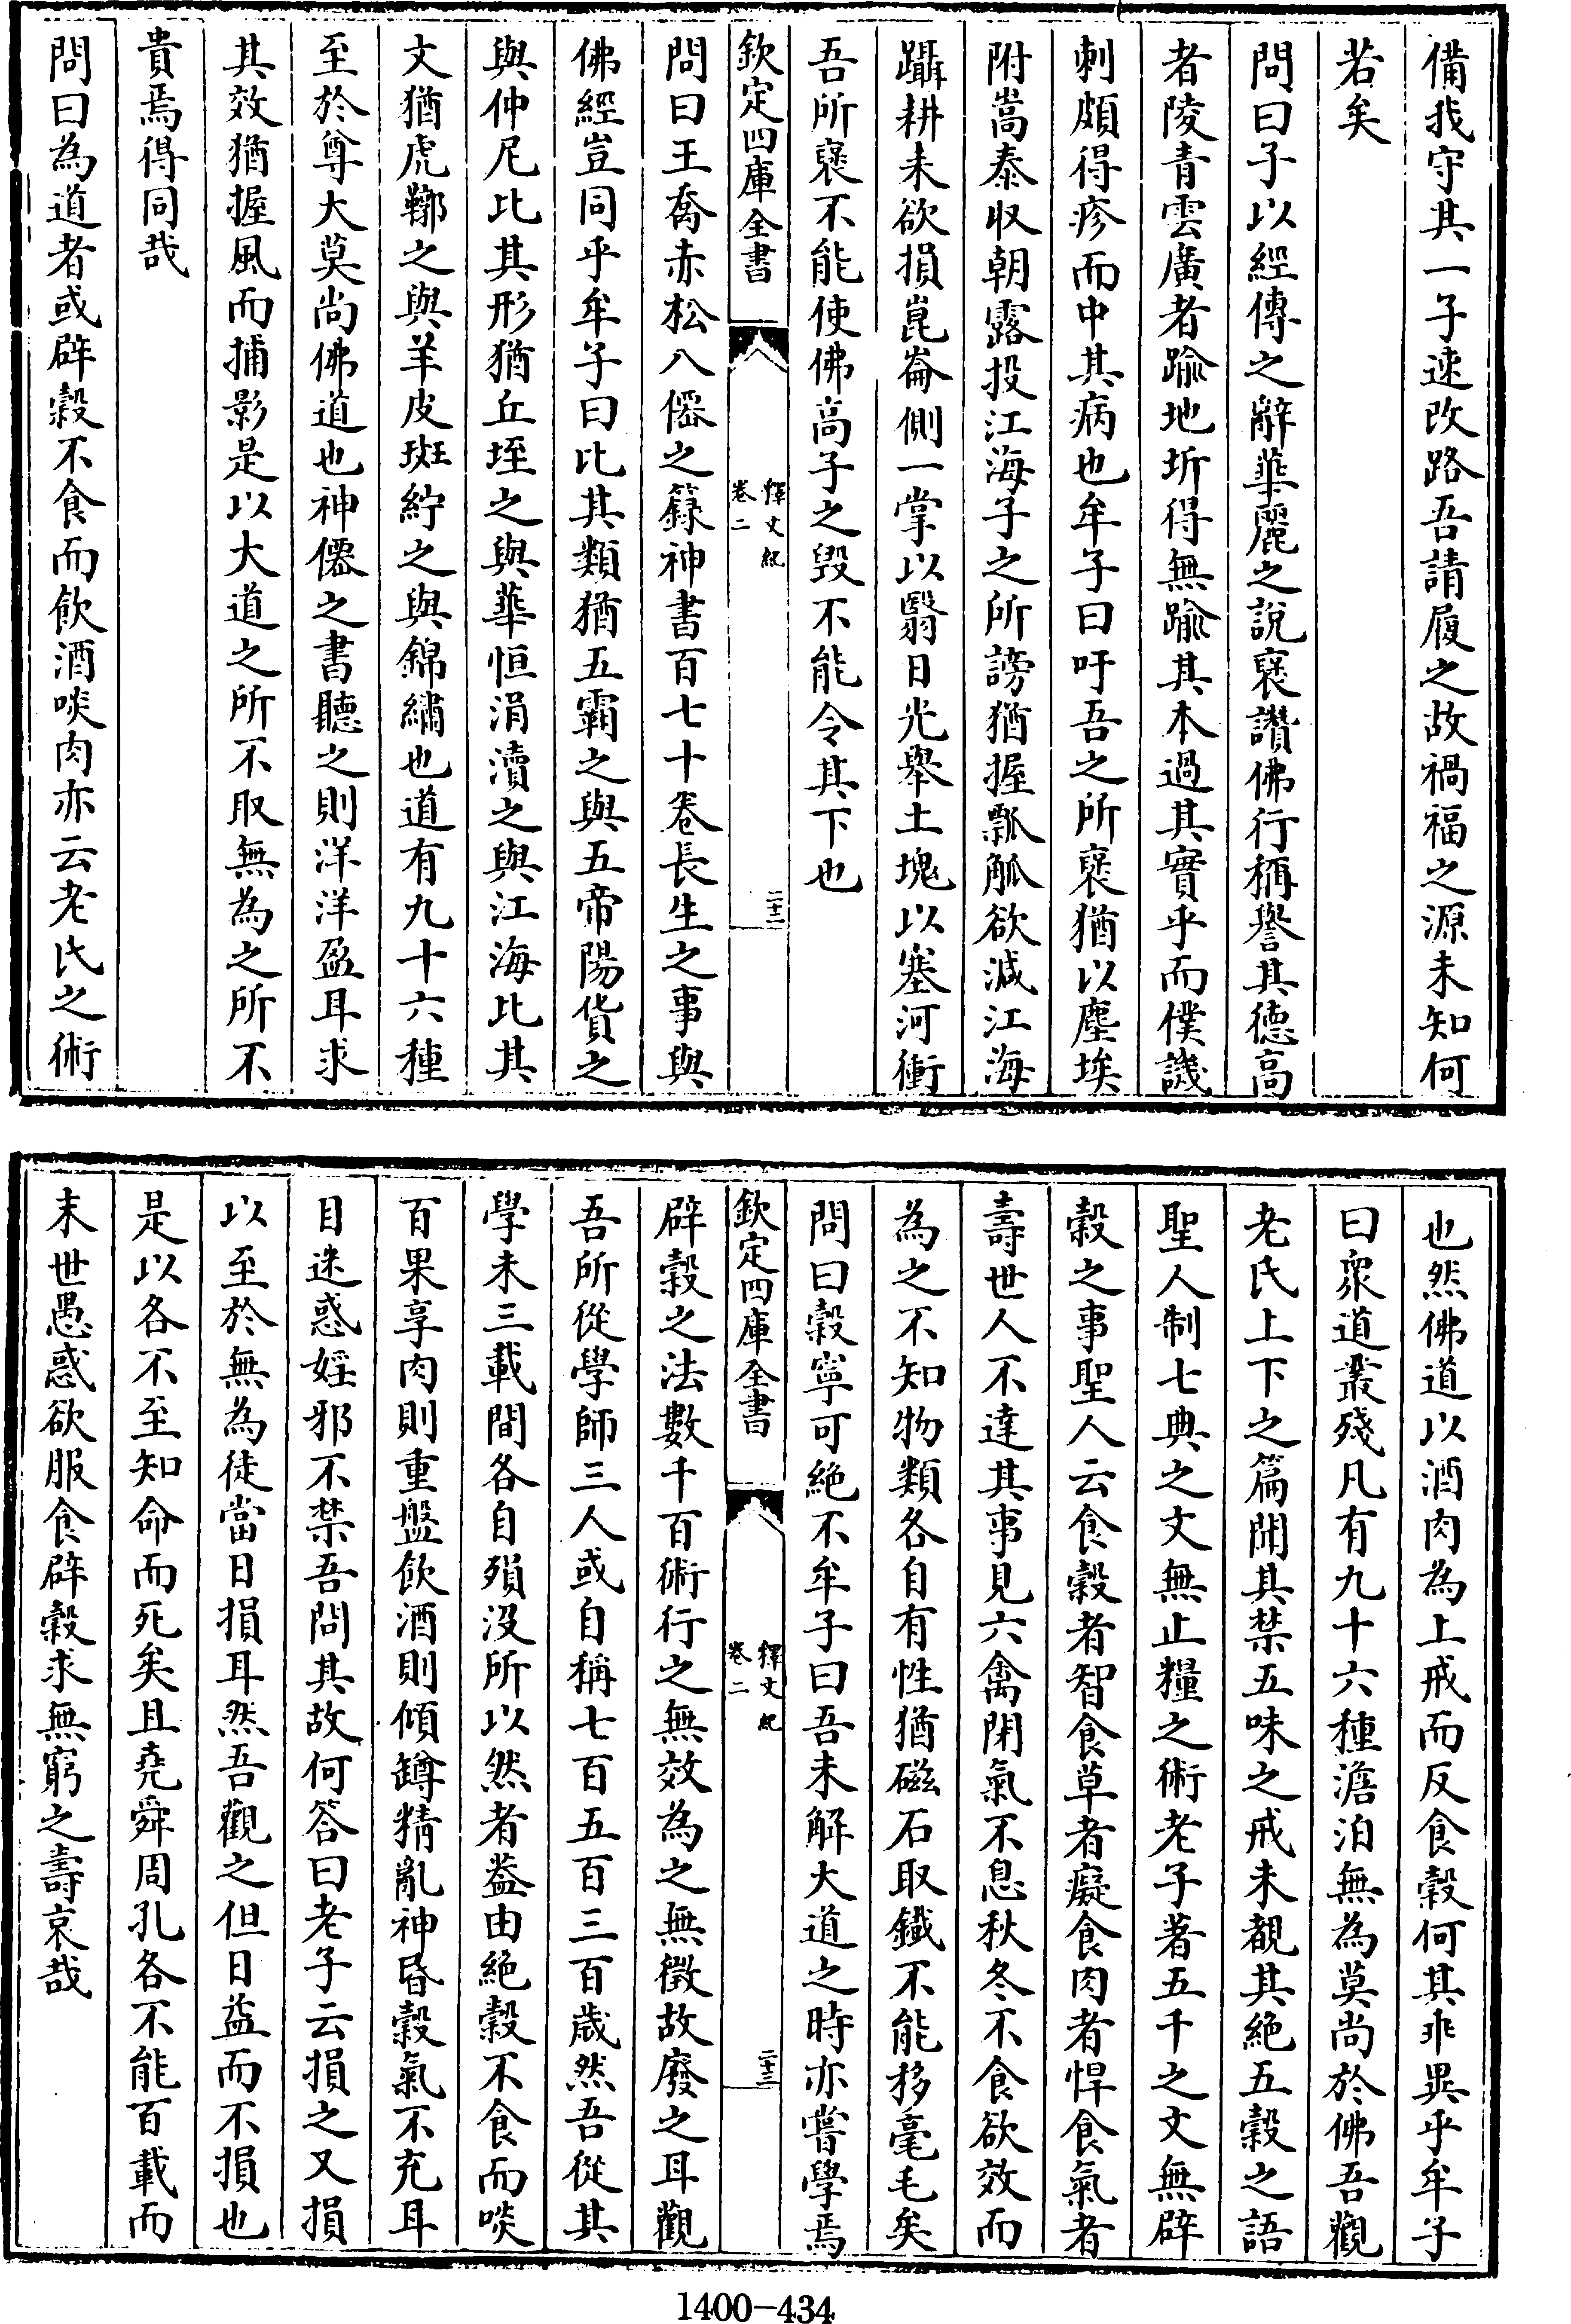 備我守其一子速改路吾請履之故禍福之源未知何
若矣
問曰子以經傳之辭華麗之說褒讚佛行稱譽其德高
者陵青雲廣者踰地圻得無踰其本過其實乎而僕譏
刺頗得疹而中其病也牟子曰吁吾之所褒猶以塵埃
附嵩泰収朝露投江海子之所謗猶握瓢觚欲減江海
躡耕耒欲損崑崙側一掌以翳日光舉土塊以塞河衝
吾所褒不能使佛高子之毀不能令其下也
欽定四庫全書
釋文紀
卷二
二十二
問曰王喬赤松八僊之籙神書百七十卷長生之事與
佛經豈同乎牟子曰比其類猶五霸之與五帝陽貨之
與仲尼比其形猶丘垤之與華恒涓瀆之與江海比其
文猶虎鞹之與羊皮斑紵之與錦繡也道有九十六種
至於尊大莫尚佛道也神僊之書聽之則洋洋盈耳求
其效猶握風而捕影是以大道之所不取無為之所不
貴焉得同哉
問曰為道者或辟穀不食而飲酒啖肉亦云老氏之術
也然佛道以酒肉為上戒而反食穀何其乖異乎牟子
曰衆道叢殘凡有九十六種澹泊無為莫尚於佛吾觀
老氏上下之篇聞其禁五味之戒未覩其絶五穀之語
聖人制七典之文無止糧之術老子著五千之文無辟
穀之事聖人云食穀者智食草者癡食肉者悍食氣者
壽世人不達其事見六禽閉氣不息秋冬不食欲效而
為之不知物類各自有性猶磁石取鐵不能移毫毛矣
問曰穀寧可絶不牟子曰吾未解大道之時亦嘗學焉
欽定四庫全書
釋文紀
卷二
二十三
辟穀之法數千百術行之無效為之無徵故廢之耳觀
吾所從學師三人或自稱七百五百三百歲然吾從其
學未三載間各自殞沒所以然者葢由絶穀不食而啖
百果享肉則重盤飲酒則傾罇精亂神昏穀氣不充耳
目迷惑婬邪不禁吾問其故何答曰老子云損之又損
以至於無為徒當日損耳然吾觀之但日益而不損也
是以各不至知命而死矣且堯舜周孔各不能百載而
末世愚惑欲服食辟穀求無窮之壽哀哉
1400-434